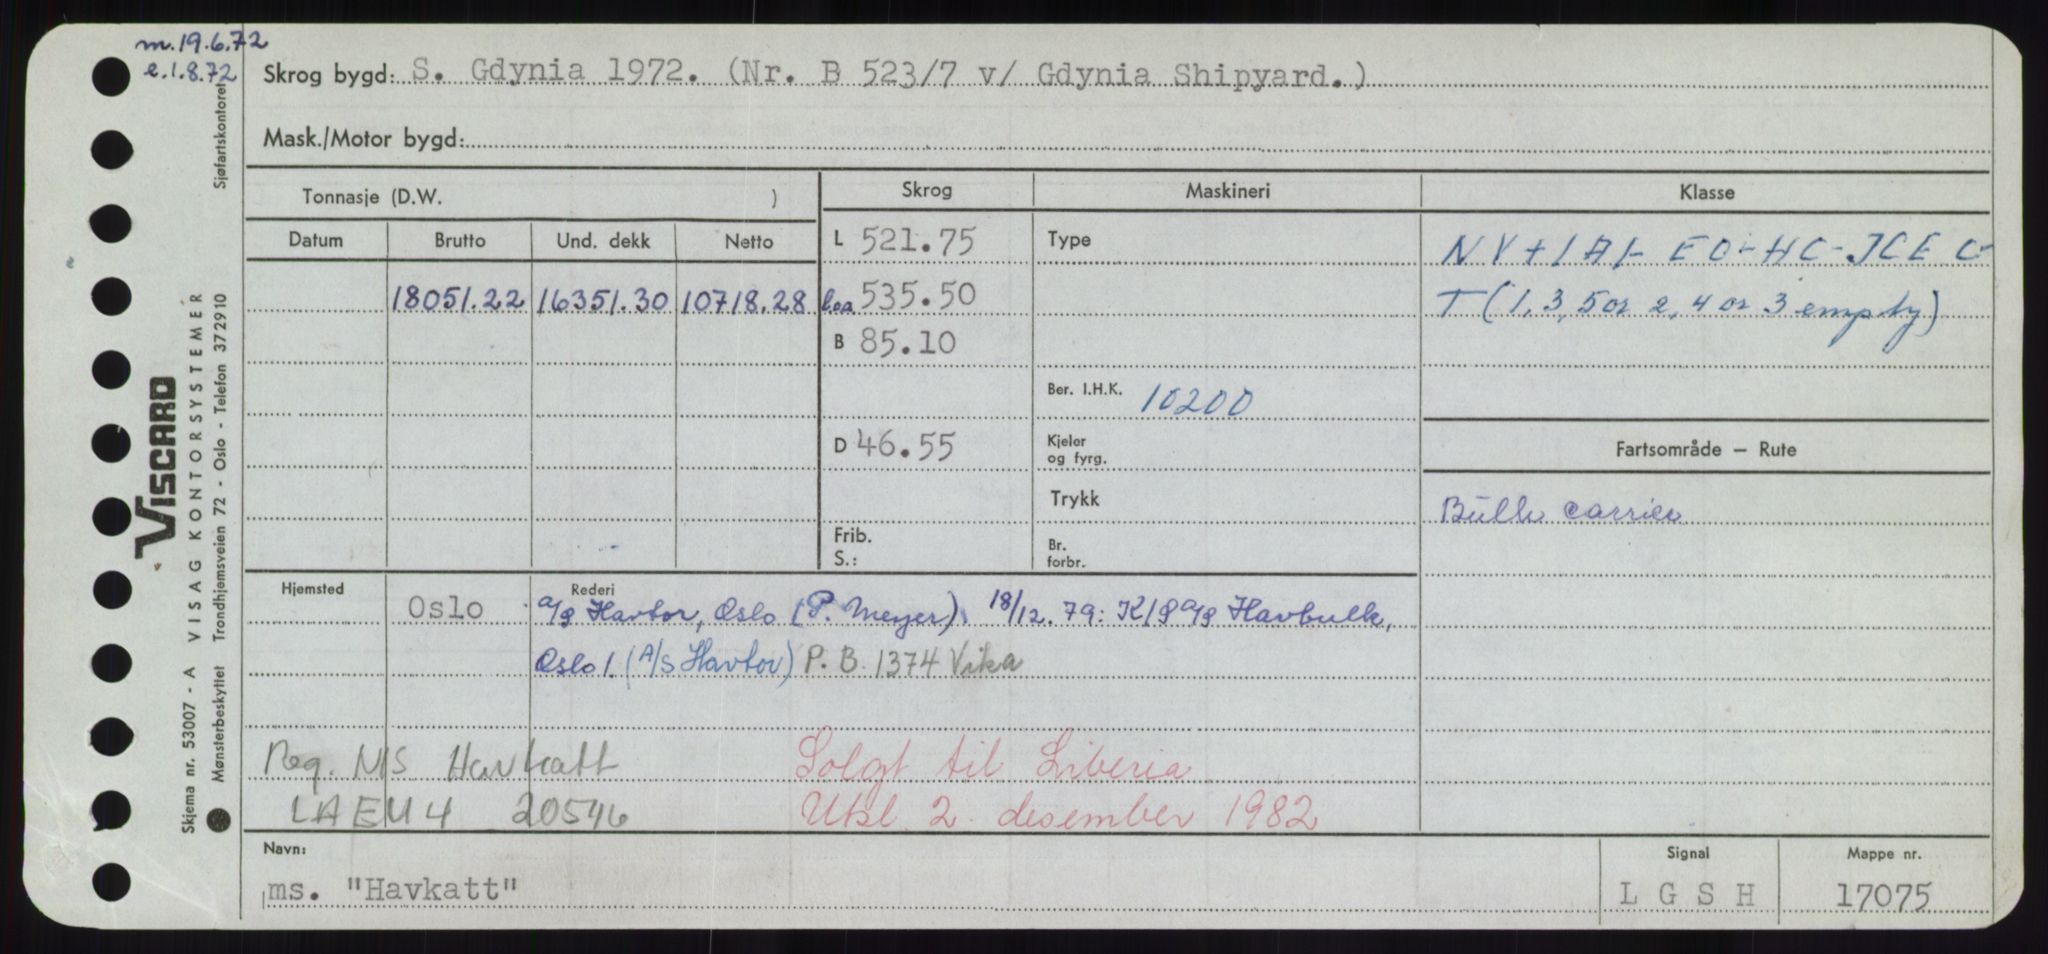 m.19.6.72
e.1.8.72
Skrog bygd: S. Gdynia 1972. (Nr. B 523/7 v/ Gdynia Shipyard.)
Mask./Motor bygd:
Tonnasje (D.W. )
Skrog
Maskineri
Klasse
Datum Brutto Und. dekk Netto
L 521.75
Type
NV+1A1- EO-HC-ICE C-
18051.22 16351.30 10718.28
loa 535.50
T (1,3,5 or 2,4 or 3 empty)
B 85.10
Ber. I.H.K. 10200
D 46.55
Kjeler
og fyrg.
Fartsområde – Rute
Trykk
Bulk carrier
Frib.
S.:
Br.
forbr.
Hjemsted
Rederi
Oslo
A/S Havtor, Oslo (P. Meyer) 18/12.79: K/S A/S Havbulk,
Oslo 1. (A/S Havtor) P.B. 1374 Vika
Reg. NIS Havkatt
Solgt til Liberia
LAEU4 20546
Utsl. 2. desember 1982
Navn:
ms. "Havkatt"
Signal
L G S H
Mappe nr.
17075
VISCARD
Skjema nr. 53007 - A VISAG KONTORSYSTEMER
Mønsterbeskyttet Trondhjemsveien 72 - Oslo - Telefon 372910
Sjøfartskontoret